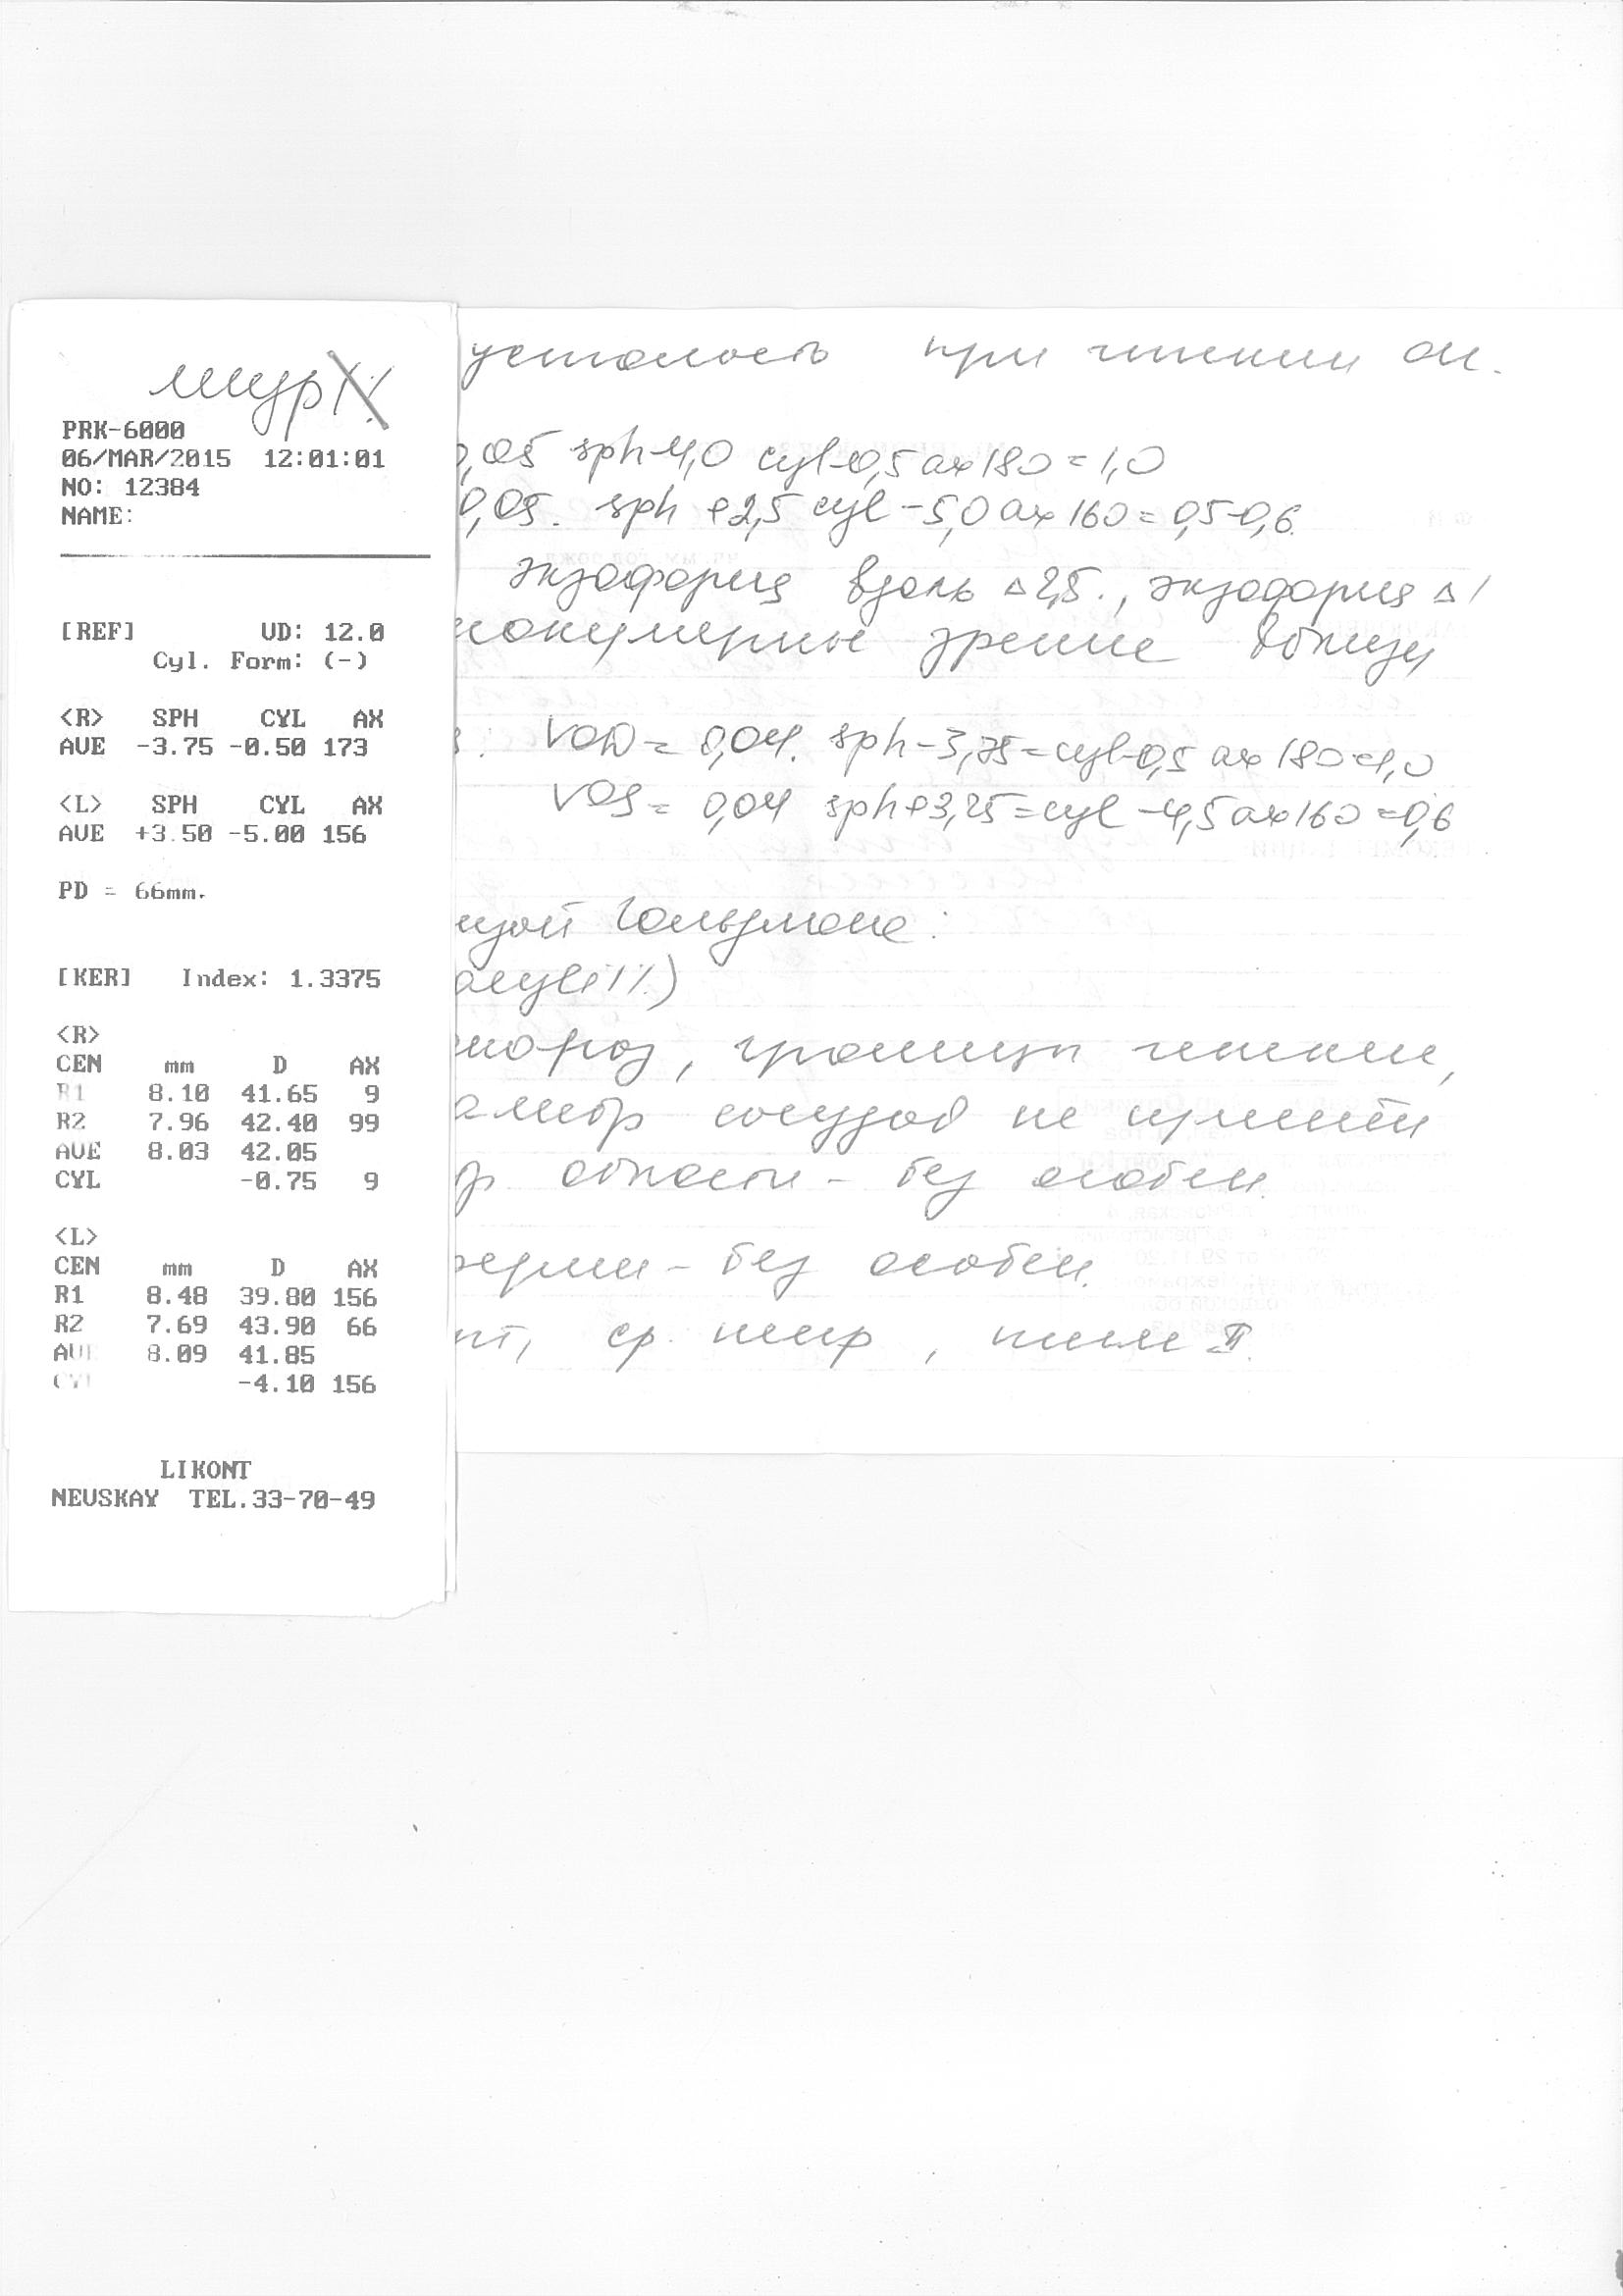 PRK-6000
06/MAR/2015 12:01:01
NO: 12384
NAME:
[REF] VD: 12.0
Cyl. Form: (-)
<R> SPH CYL AX
AVE -3.75 -0.50 173
<L> SPH CYL AX
AVE +3.50 -5.00 156
PD = 66mm.
[KER] Index: 1.3375
<R>
CEN mm D AX
R1 8.10 41.65 9
R2 7.96 42.40 99
AVE 8.03 42.05
CYL -0.75 9
<L>
CEN mm D AX
R1 8.48 39.80 156
R2 7.69 43.90 66
AVE 8.09 41.85
CYL -4.10 156
LIKONT
NEVSKAY TEL.33-70-49
усталость при чтении
0,05 sph-4,0 cyl-0,5 ax 180 = 1,0
0,05. sph +2,5 cyl -5,0 ax 160 = 0,5-0,6.
экзофория вдаль Δ2,5., экзофория Δ1
зрение вблизи
VOD = 0,04. sph-3,75 = cyl-0,5 ax 180 = 1,0
VOS = 0,04 sph+3,25 = cyl -4,5 ax 160 = 0,6
Гольдмана:
границы четкие,
сосудов не
области - без особен.
без особен.
ср. шир, II.